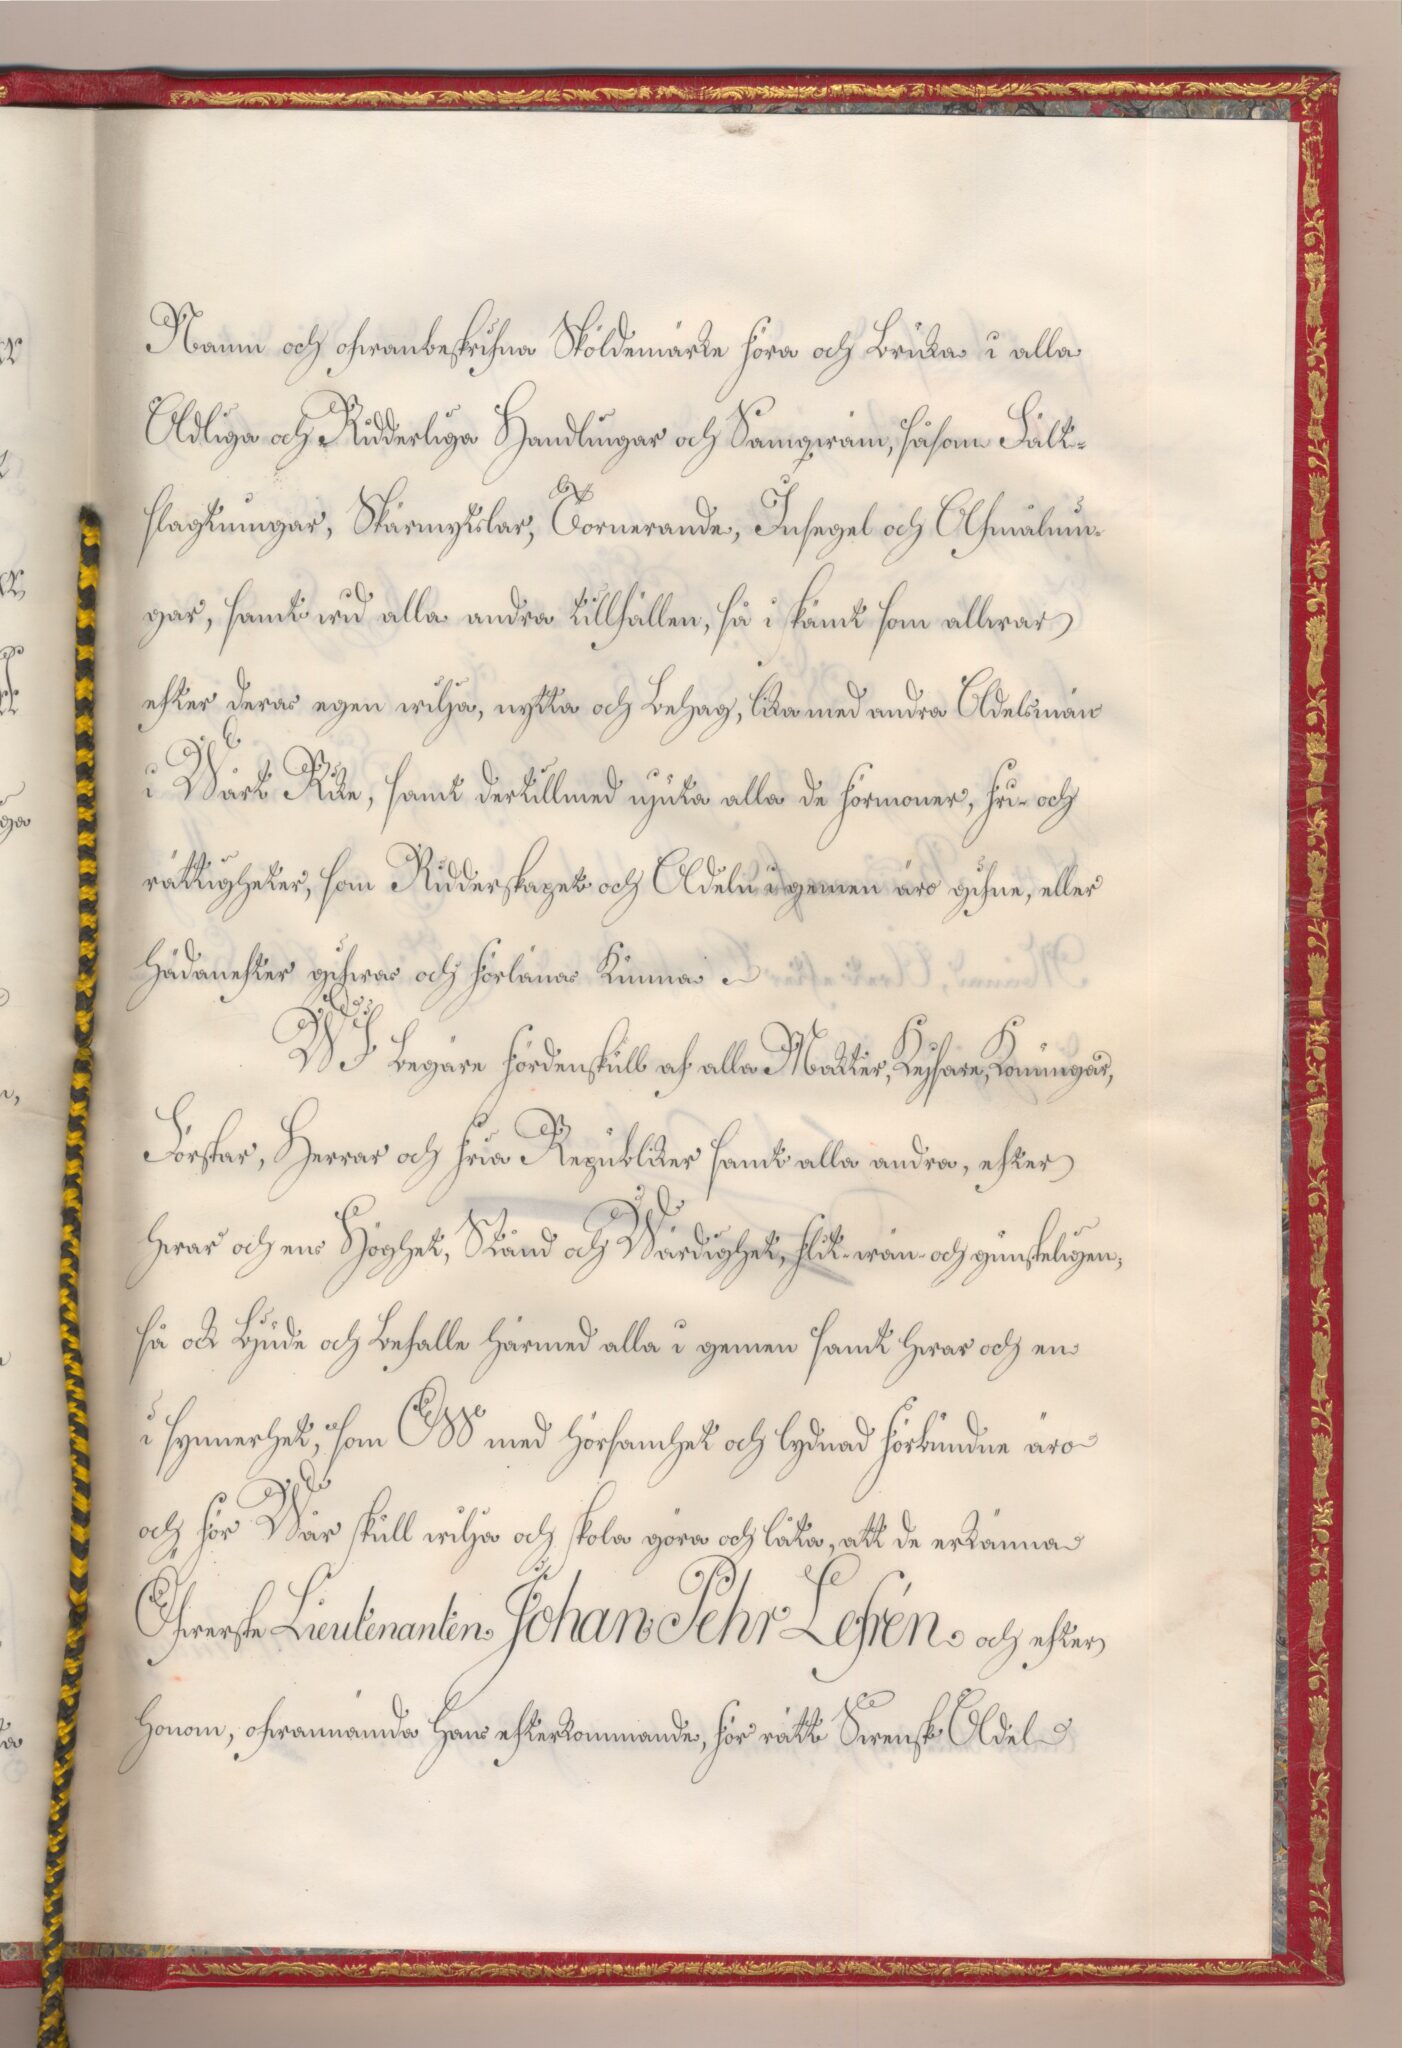 Namn och ofwanbeskrifna Sköldemärke föra och bruka i alla
Adliga och Ridderliga Handlingar och Samqwäm, såsom Fält-
slagtningar, Skärmytslar, Tornerande, Insegel och Afmålnin-
gar, samt wid alla andra tillfällen, så i skämt som allwar
efter deras egen wilja, nytta och behag, lika med andra Adelsmän
i Wårt Rike, samt dertillmed njuta alla de förmoner, fri- och
rättigheter, som Ridderskapet och Adeln i gemen äro gifne, eller
hädanefter gifwas och förlänas kunna
WJ begäre fördenskull af alla Makter, Kejsare, Konungar,
Förstar, Herrar och fria Republiker samt alla andra, efter
hwar och ens Höghet, Stånd och Wärdighet, flit- wän- och gunsteligen,
så ock bjude och befalle härmed alla i gemen samt hwar och en
i synnerhet, som OSS med hörsamhet och lydnad förbundne äro
och för Wår skull wilja och skola göra och låta, att de erkänna
Öfwerste Lieutenanten Johan Pehr Lefrén och efter
honom, ofwannämnda Hans efterkommande, för rätt Swensk Adel